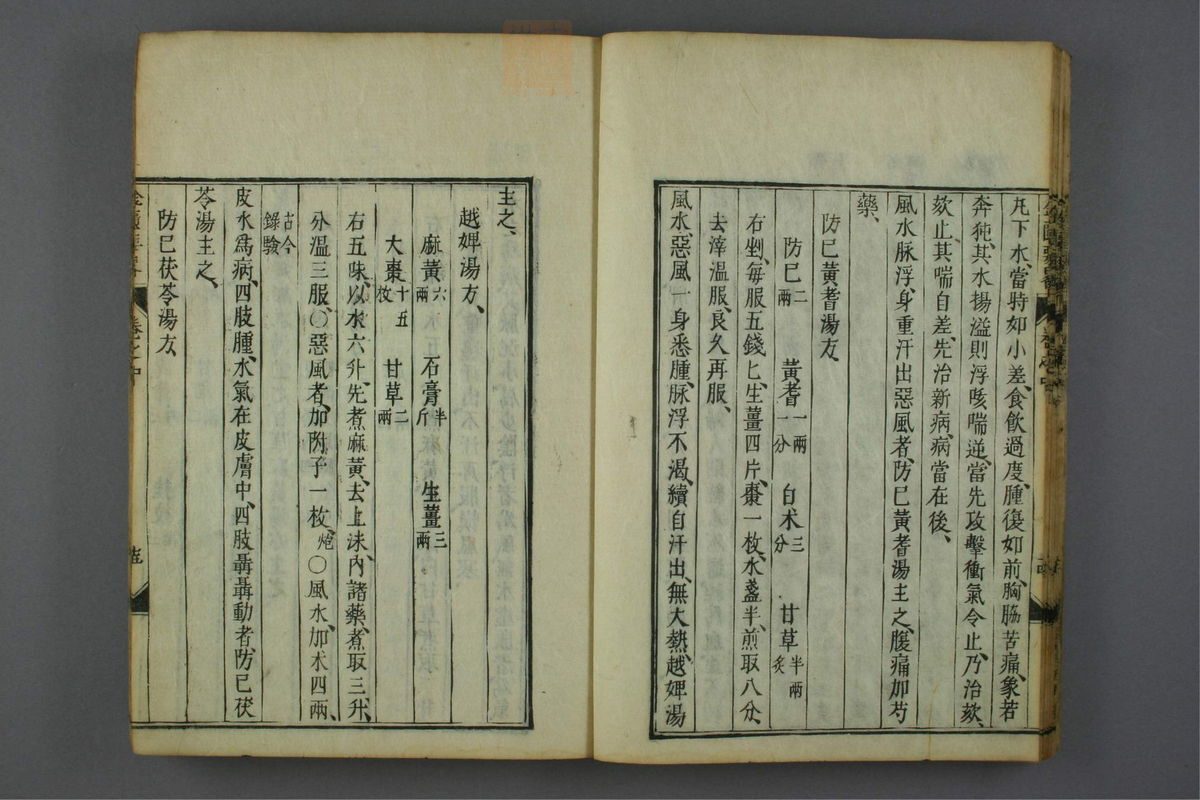 尢下水、當時如小差、食飲過度、腫復如前、胸脇苦痛、象若
奔㹠、其水揚溢則浮咳喘逆、當先攻擊衝氣令止、乃治欬、
欬止其喘自差、先治新病、病當在後、
風水脉浮、身重汗出惡風者、防巳黃耆湯主之、腹痛加芍
藥、
防巳黃耆湯方、
防巳二兩 黃耆一兩一分 白朮三分 甘草半兩炙
右剉、每服五錢匕、生薑四片、棗一枚、水盞半、煎取八分、
去滓溫服、良久再服、
風水、惡風一身悉腫、脉浮不渴、續自汗出、無大熱、越婢湯
主之、
越婢湯方、
麻黃六兩 石膏半斤 生薑三兩
大棗十五枚 甘草二兩
右五味、以水六升、先煮麻黃、去上沫、內諸藥、煮取三升、
分溫三服、○惡風者、加附子一枚、炮○風水加朮四兩、
古今錄驗
皮水爲病、四肢腫、水氣在皮膚中、四肢聶聶動者、防巳茯
苓湯主之、
防巳茯苓湯方、
卷之中